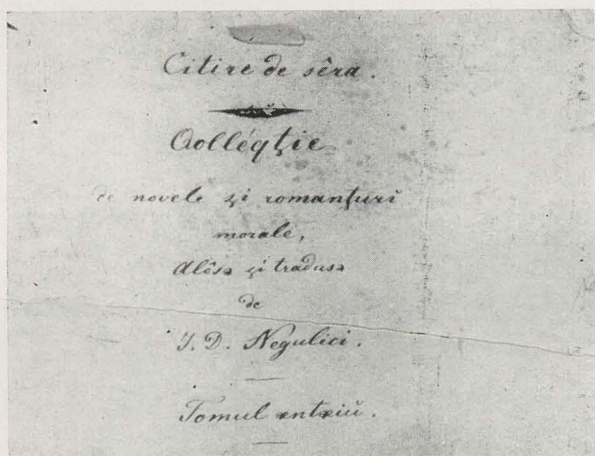 Citire de sêra.
Qollégţie
de novele şi romanţuri
morale,
Alêsъ şi tradusъ
de
I. D. Negulici.
Tomul ъntъiŭ.